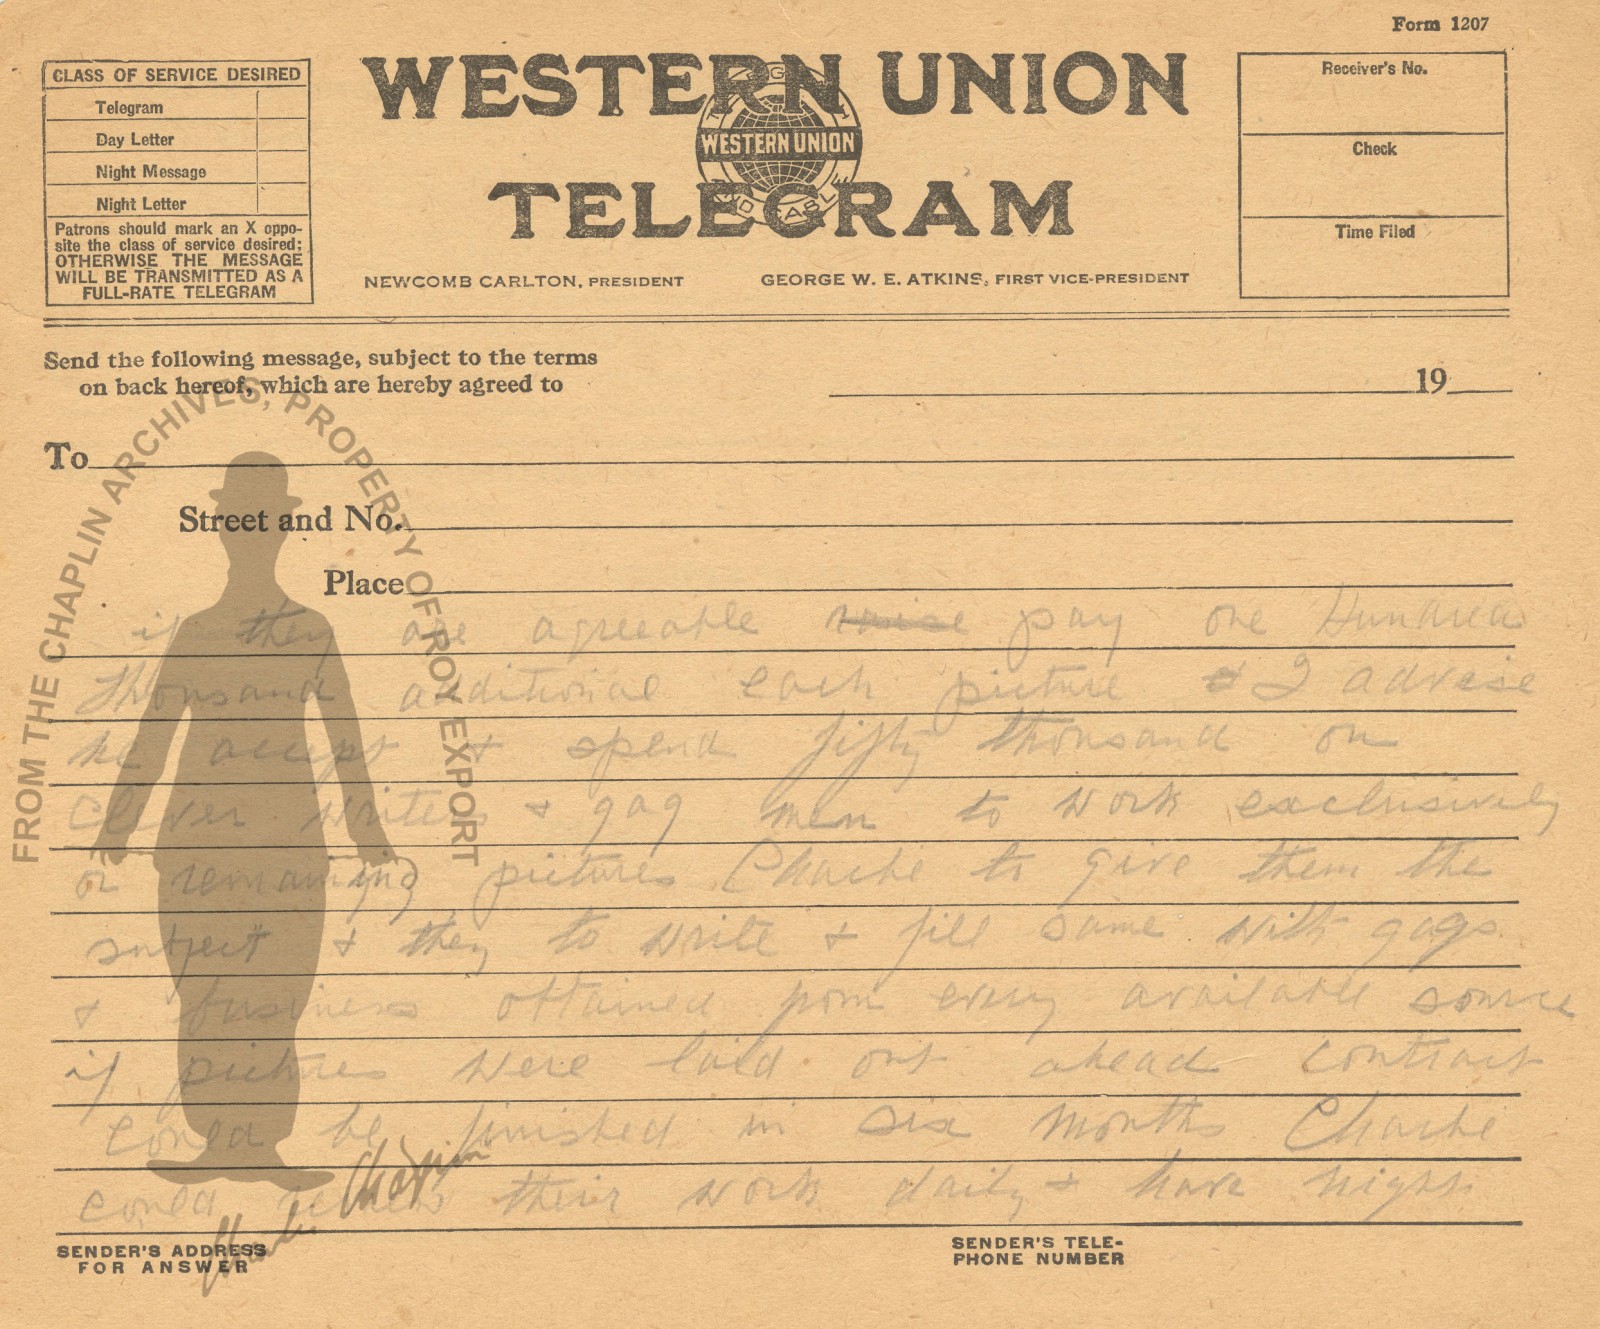 Form 1207
CLASS OF SERVICE DESIRED
Telegram
Day Letter
Night Message
Night Letter
Patrons should mark an X oppo-
site the class of service desired;
OTHERWISE THE MESSAGE
WILL BE TRANSMITTED AS A
FULL-RATE TELEGRAM
WESTERN UNION
WESTERN UNION
TELEGRAM
AND CABLE
NEWCOMB CARLTON, PRESIDENT
GEORGE W. E. ATKINS, FIRST VICE-PRESIDENT
Receiver's No.
Check
Time Filed
Send the following message, subject to the terms
on back hereof, which are hereby agreed to
19
To
Street and No.
Place
FROM THE CHAPLIN ARCHIVES, PROPERTY OF ROY EXPORT
if they are agreeable raise pay one Hundred
Thousand additional each picture & I advise
he accept & spend fifty thousand on
Clever writers & gag men to work exclusively
on remaining pictures Charlie to give them the
subject & they to write & fill same with gags
& business obtained from every available source
if pictures were laid out ahead contract
could be finished in six months Charlie
could their work daily & have night
Charlie Chaplin
SENDER'S ADDRESS
FOR ANSWER
SENDER'S TELE-
PHONE NUMBER